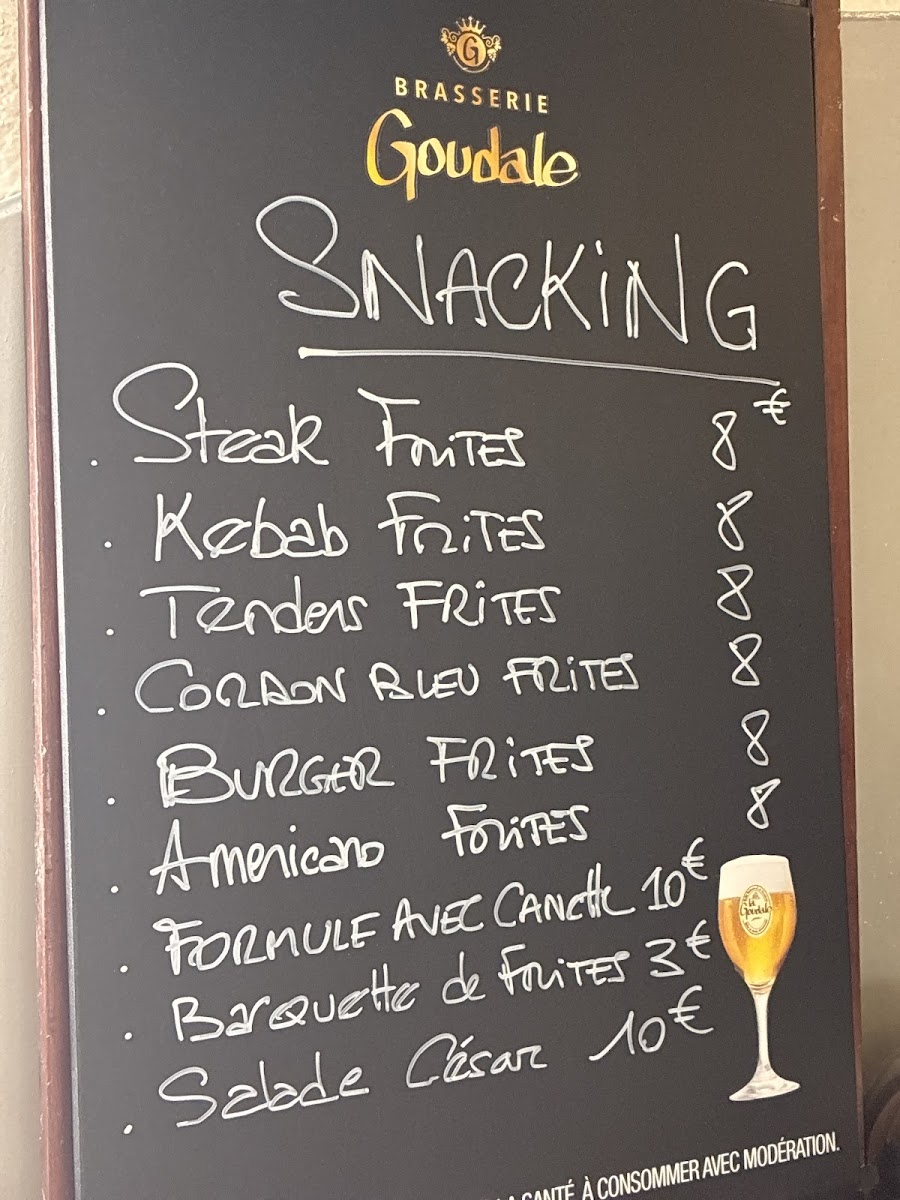 G
BRASSERIE
Goudale
SNACKiNG
. Steak FRiTES 8€
. Kebab FRiTES 8
. Tenders FRiTES 8
. CORDON BLEU FRiTES 8
. BURGER FRiTES 8
. Americano FRiTES 8
. FORMULE AVEC CANette 10€
. Barquette de FRiTES 3€
. Salade César 10€
la Goudale
LA SANTÉ, À CONSOMMER AVEC MODÉRATION.